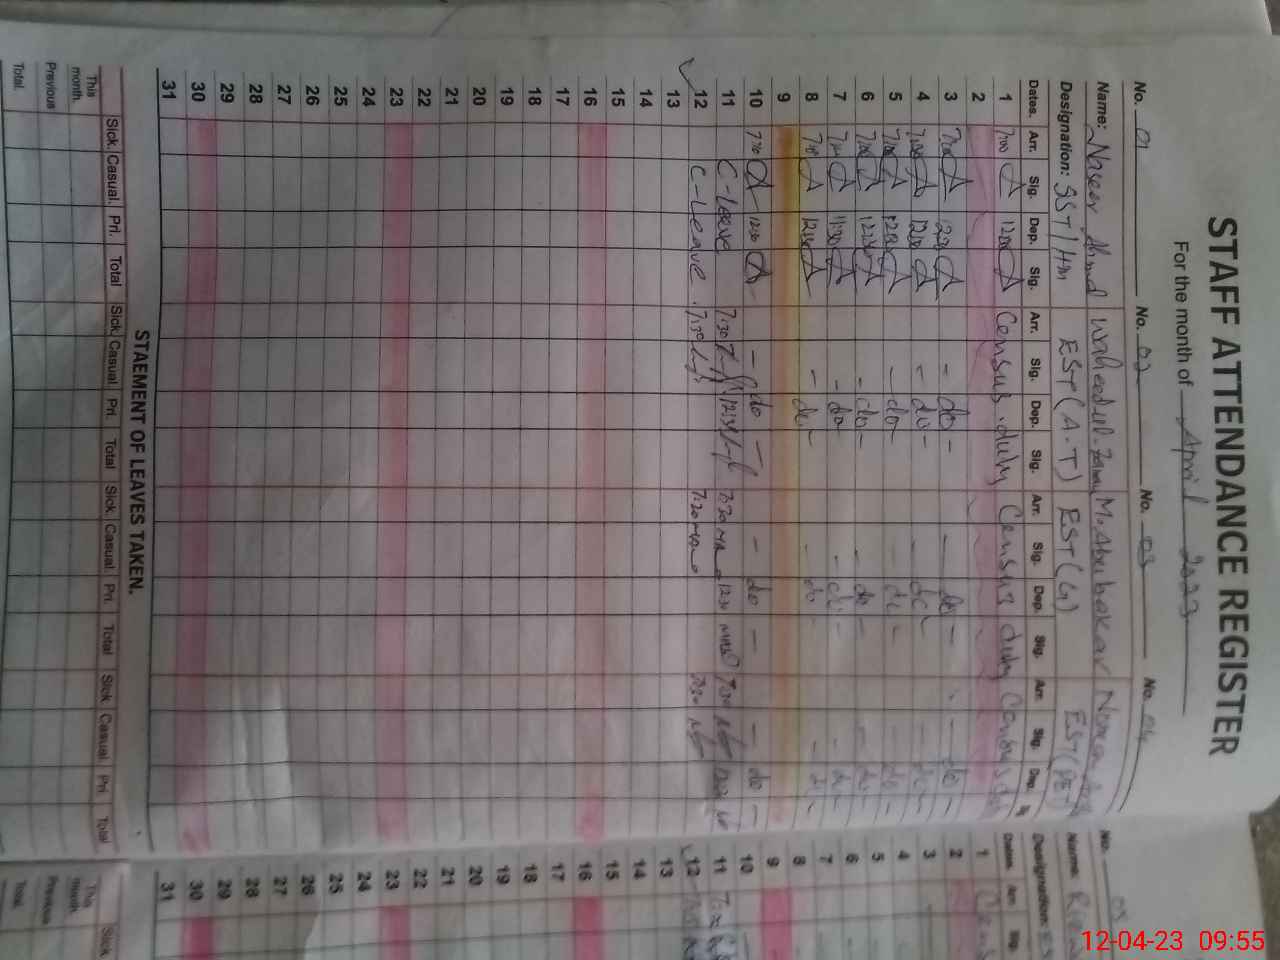 STAFF ATTENDANCE REGISTER
For the month of April 2023
No. 01 No. 02 No. 03 No. 04
Name: Naseer Ahmad Waheed-ul-Zaman M. Abubakar Noman
Designation: SST/HM EST (A.T) EST (G) EST (PET)
Dates. Arr. Sig. Dep. Sig. Arr. Sig. Dep. Sig. Arr. Sig. Dep. Sig. Arr. Sig. Dep.
1 7:00 1200 Census duty Census duty Census
2
3 7:00 1230 - do - - do - - do -
4 7:00 1200 - do - - do - - do -
5 7:00 1230 - do - - do - - do -
6 7:00 1230 - do - - do - - do -
7 1130 - do - - do - - do -
8 - do - - do -
9
10 1230 - do - - do - - do -
11 C-Leave 7:30 1230 7:30 1230 7:30 1230
12 C-Leave 7:30 7:30 7:30
13
14
15
16
17
18
19
20
21
22
23
24
25
26
27
28
29
30
31
STAEMENT OF LEAVES TAKEN.
Sick. Casual. Pri. Total Sick. Casual. Pri. Total Sick Casual. Pri Total Sick Casual. Pri Total
This month.
Previous
Total.
No. 05
Name:
Designation:
Dates. Arr. Sig.
1
2
3
4
5
6
7
8
9
10
11
12
13
14
15
16
17
18
19
20
21
22
23
24
25
26
27
28
29
30
31
Sick.
This month.
Previous
Total.
12-04-23 09:55